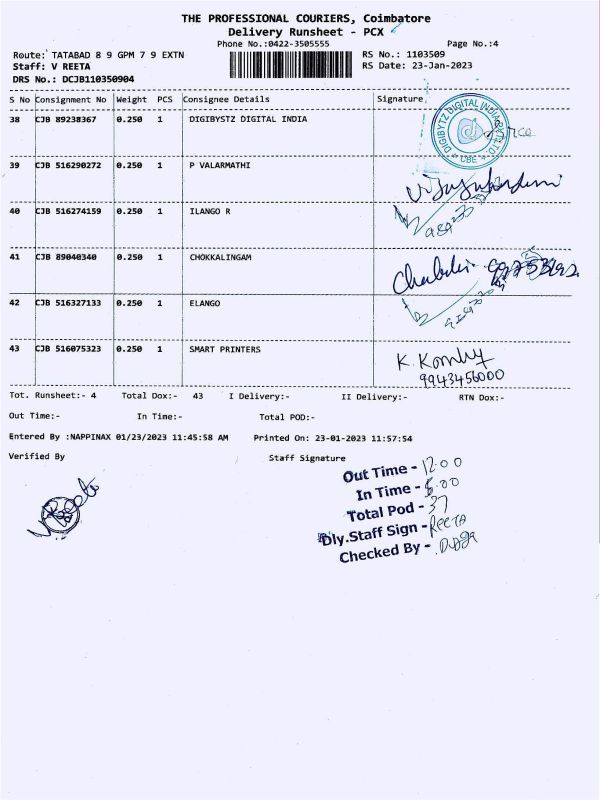 THE PROFESSIONAL COURIERS, Coimbatore
Delivery Runsheet - PCX
Phone No.:0422-3505555
Page No.:4
Route: TATABAD 8 9 GPM 7 9 EXTN
RS No.: 1103509
Staff: V REETA
RS Date: 23-Jan-2023
DRS No.: DCJB110350904
S No Consignment No Weight PCS Consignee Details Signature
38 CJB 89238367 0.250 1 DIGIBYSTZ DIGITAL INDIA
DIGIBYTZ DIGITAL INDIA (P) LTD. CBE-4
39 CJB 516290272 0.250 1 P VALARMATHI
40 CJB 516274159 0.250 1 ILANGO R
41 CJB 89040340 0.250 1 CHOKKALINGAM
42 CJB 516327133 0.250 1 ELANGO
43 CJB 516075323 0.250 1 SMART PRINTERS
K.
9943456000
Tot. Runsheet:- 4 Total Dox:- 43 I Delivery:- II Delivery:- RTN Dox:-
Out Time:- In Time:- Total POD:-
Entered By :NAPPINAX 01/23/2023 11:45:58 AM Printed On: 23-01-2023 11:57:54
Verified By Staff Signature
Out Time - 12.00
In Time - 5.00
Total Pod - 37
Dly.Staff Sign - REETA
Checked By -
V Reeta